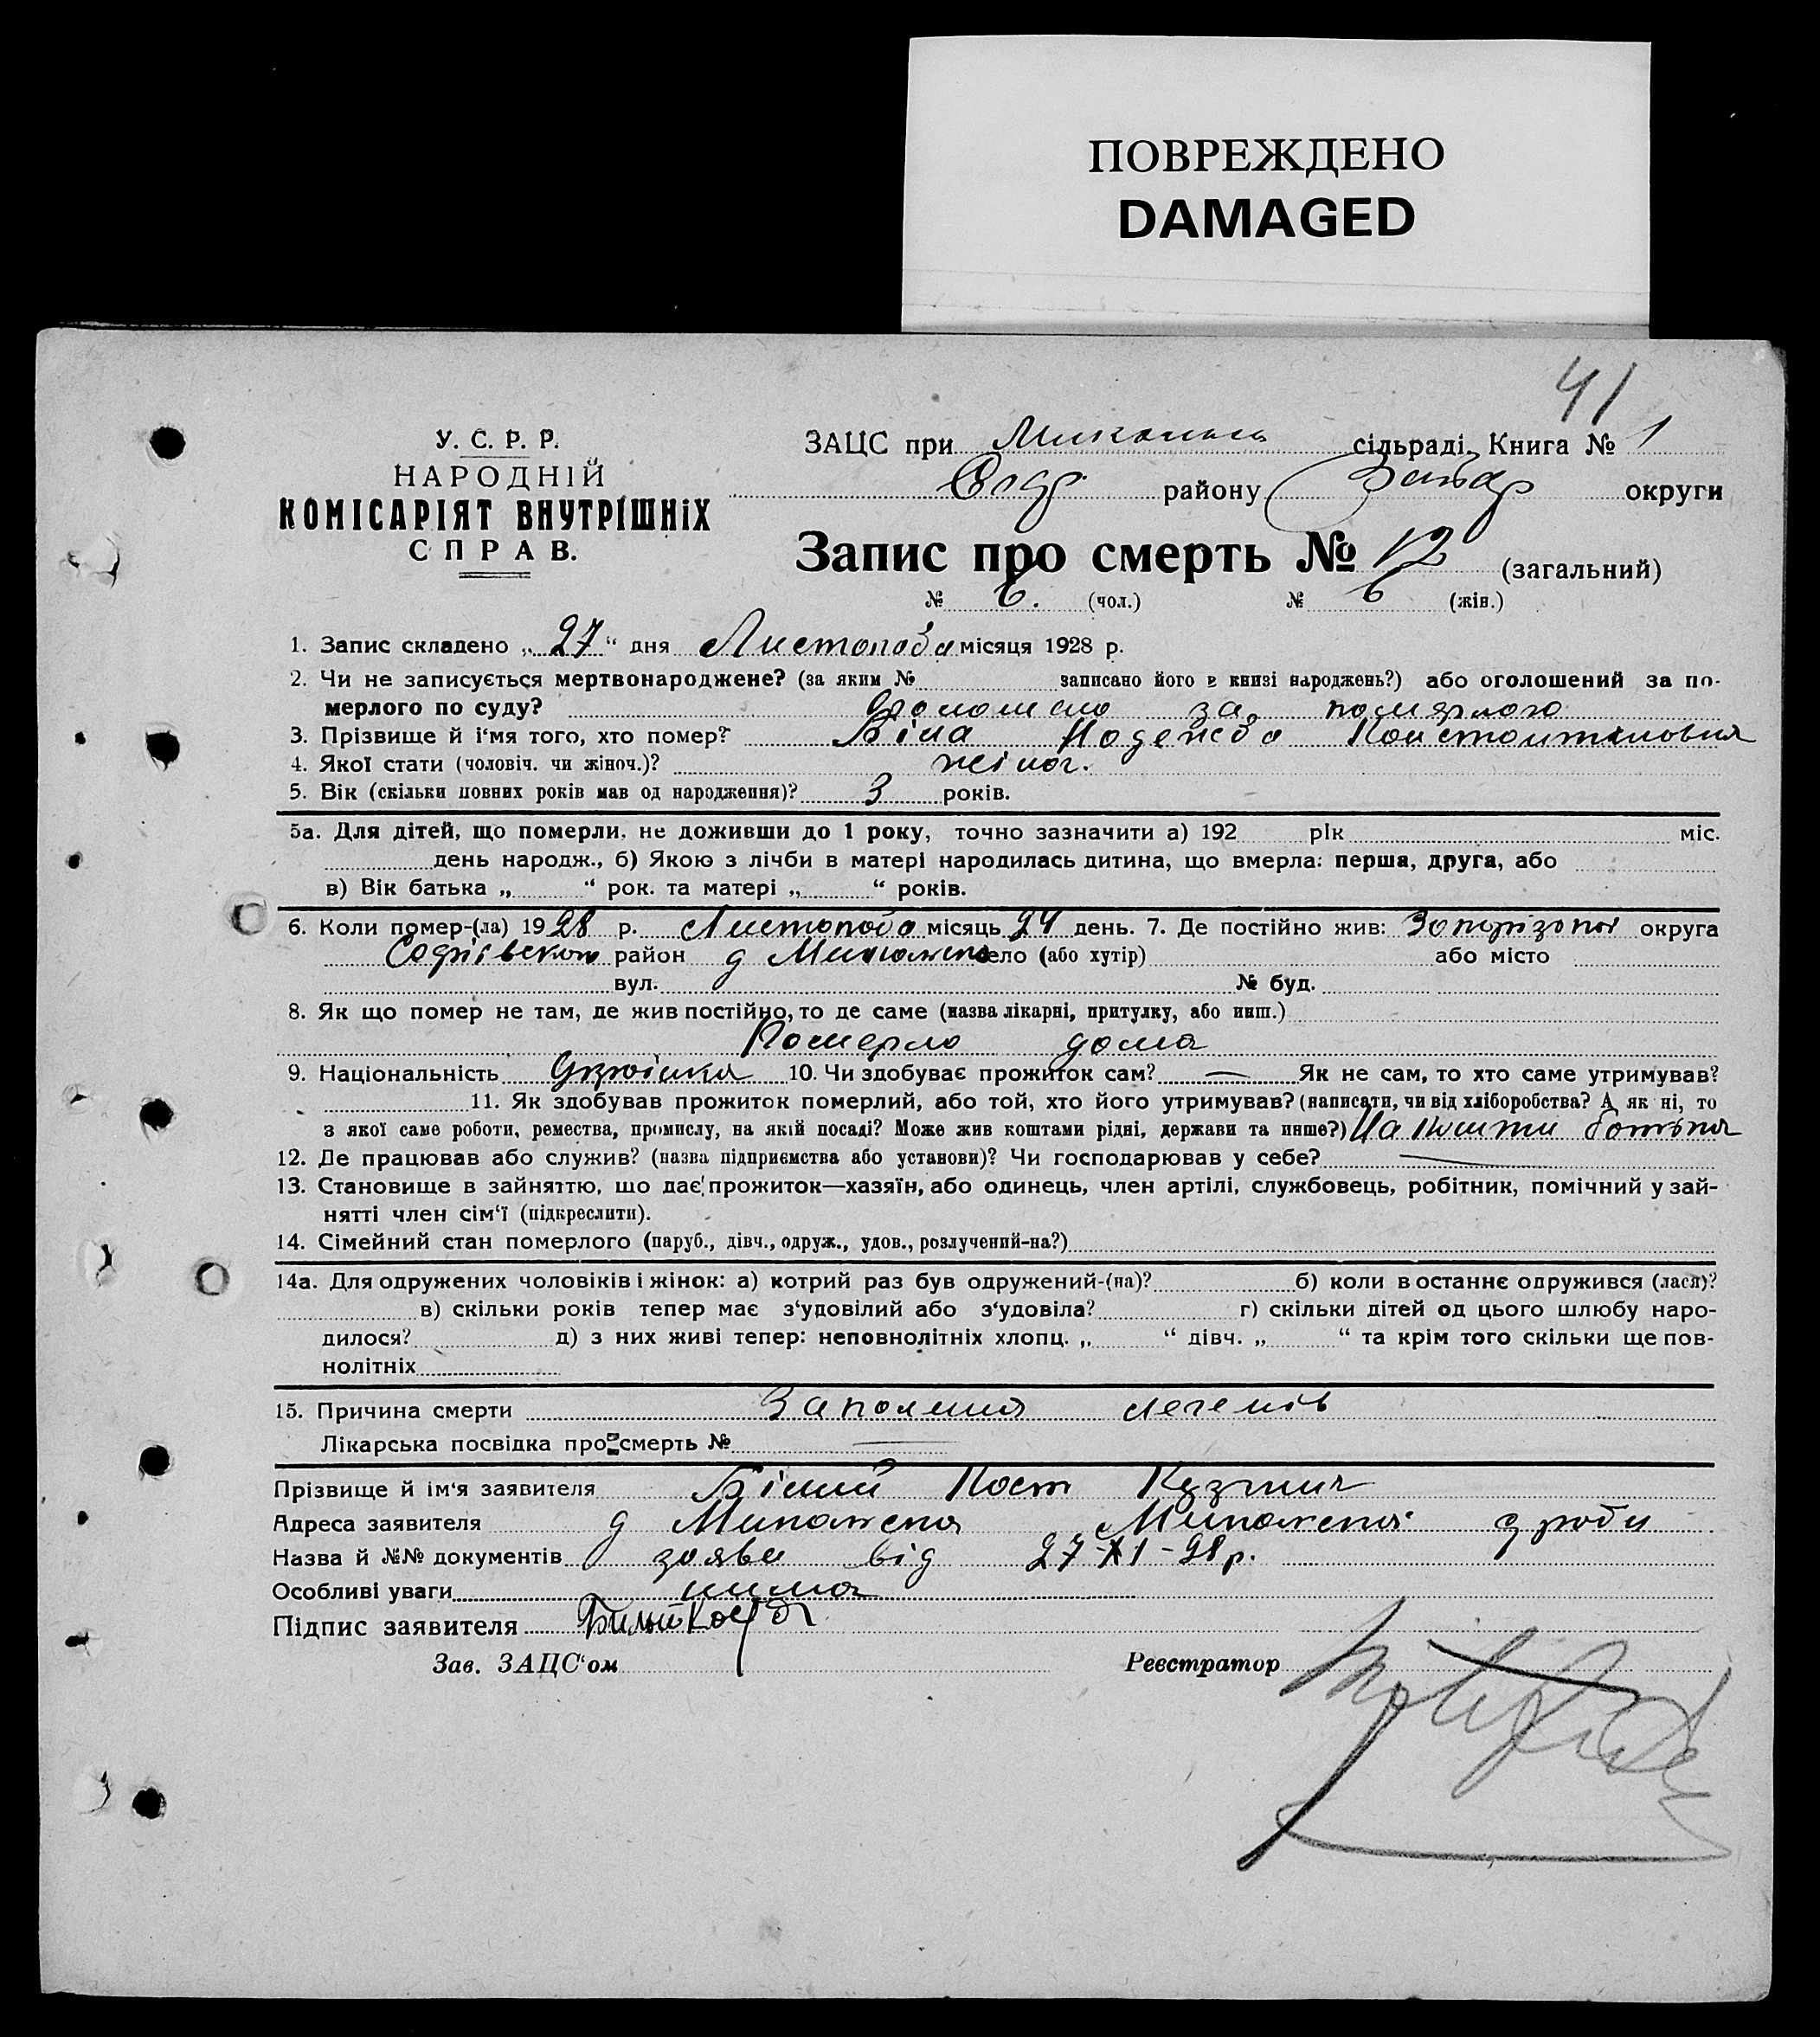 ПОВРЕЖДЕНО
DAMAGED
41
У. С. Р. Р.
НАРОДНІЙ
КОМІСАРІЯТ ВНУТРІШНІХ
СПРАВ.
ЗАЦС при сільраді. Книга № 1
району округи
Запис про смерть № 12 (загальний)
№ 6. (чол.) № 6 (жін.)
1. Запис складено „ 27 “ дня Листопада місяця 1928 р.
2. Чи не записується мертвонароджене? (за яким № записано його в книзі народжень?) або оголошений за по-
мерлого по суду? за померлого
3. Прізвище й і‘мя того, хто помер? Біла Надежда Константиновна
4. Якої стати (чоловіч. чи жіноч.)? жіноч.
5. Вік (скільки повних років мав од народження)? 3 років.
5а. Для дітей, що померли, не доживши до 1 року, точно зазначити а) 192 рік міс.
день народж., б) Якою з лічби в матері народилась дитина, що вмерла: перша, друга, або
в) Вік батька „ “ рок. та матері „ “ років.
6. Коли помер-(ла) 1928 р. Листопада місяць 24 день. 7. Де постійно жив: округа
Софіївского район д село (або хутір) або місто
вул. № буд.
8. Як що помер не там, де жив постійно, то де саме (назва лікарні, притулку, або инш.)
Померло дома
9. Національність Українка 10. Чи здобуває прожиток сам? — Як не сам, то хто саме утримував?
11. Як здобував прожиток померлий, або той, хто його утримував? (написати, чи від хліборобства? А як ні, то
з якої саме роботи, ремества, промислу, на якій посаді? Може жив коштами рідні, держави та инше?) На кошти батька
12. Де працював або служив? (назва підприємства або установи)? Чи господарював у себе? —
13. Становище в зайняттю, що дає прожиток—хазяїн, або одинець, член артілі, службовець, робітник, помічний у зай-
нятті член сім‘ї (підкреслити).
14. Сімейний стан померлого (паруб., дівч., одруж., удов., розлучений-на?)
14а. Для одружених чоловіків і жінок: а) котрий раз був одружений-(на)? б) коли в останнє одружився (лася)?
в) скільки років тепер має з‘удовілий або з‘удовіла? г) скільки дітей од цього шлюбу наро-
дилося? д) з них живі тепер: неповнолітніх хлопц. „ “ дівч. „ “ та крім того скільки ще пов-
нолітніх
15. Причина смерти Запалення легенів
Лікарська посвідка про смерть № —
Прізвище й ім‘я заявителя Білий Кост Кузмич
Адреса заявителя д
Назва й №№ документів заява від 27-XI-28 р.
Особливі уваги нима
Підпис заявителя Билый
Зав. ЗАЦС‘ом Реєстратор